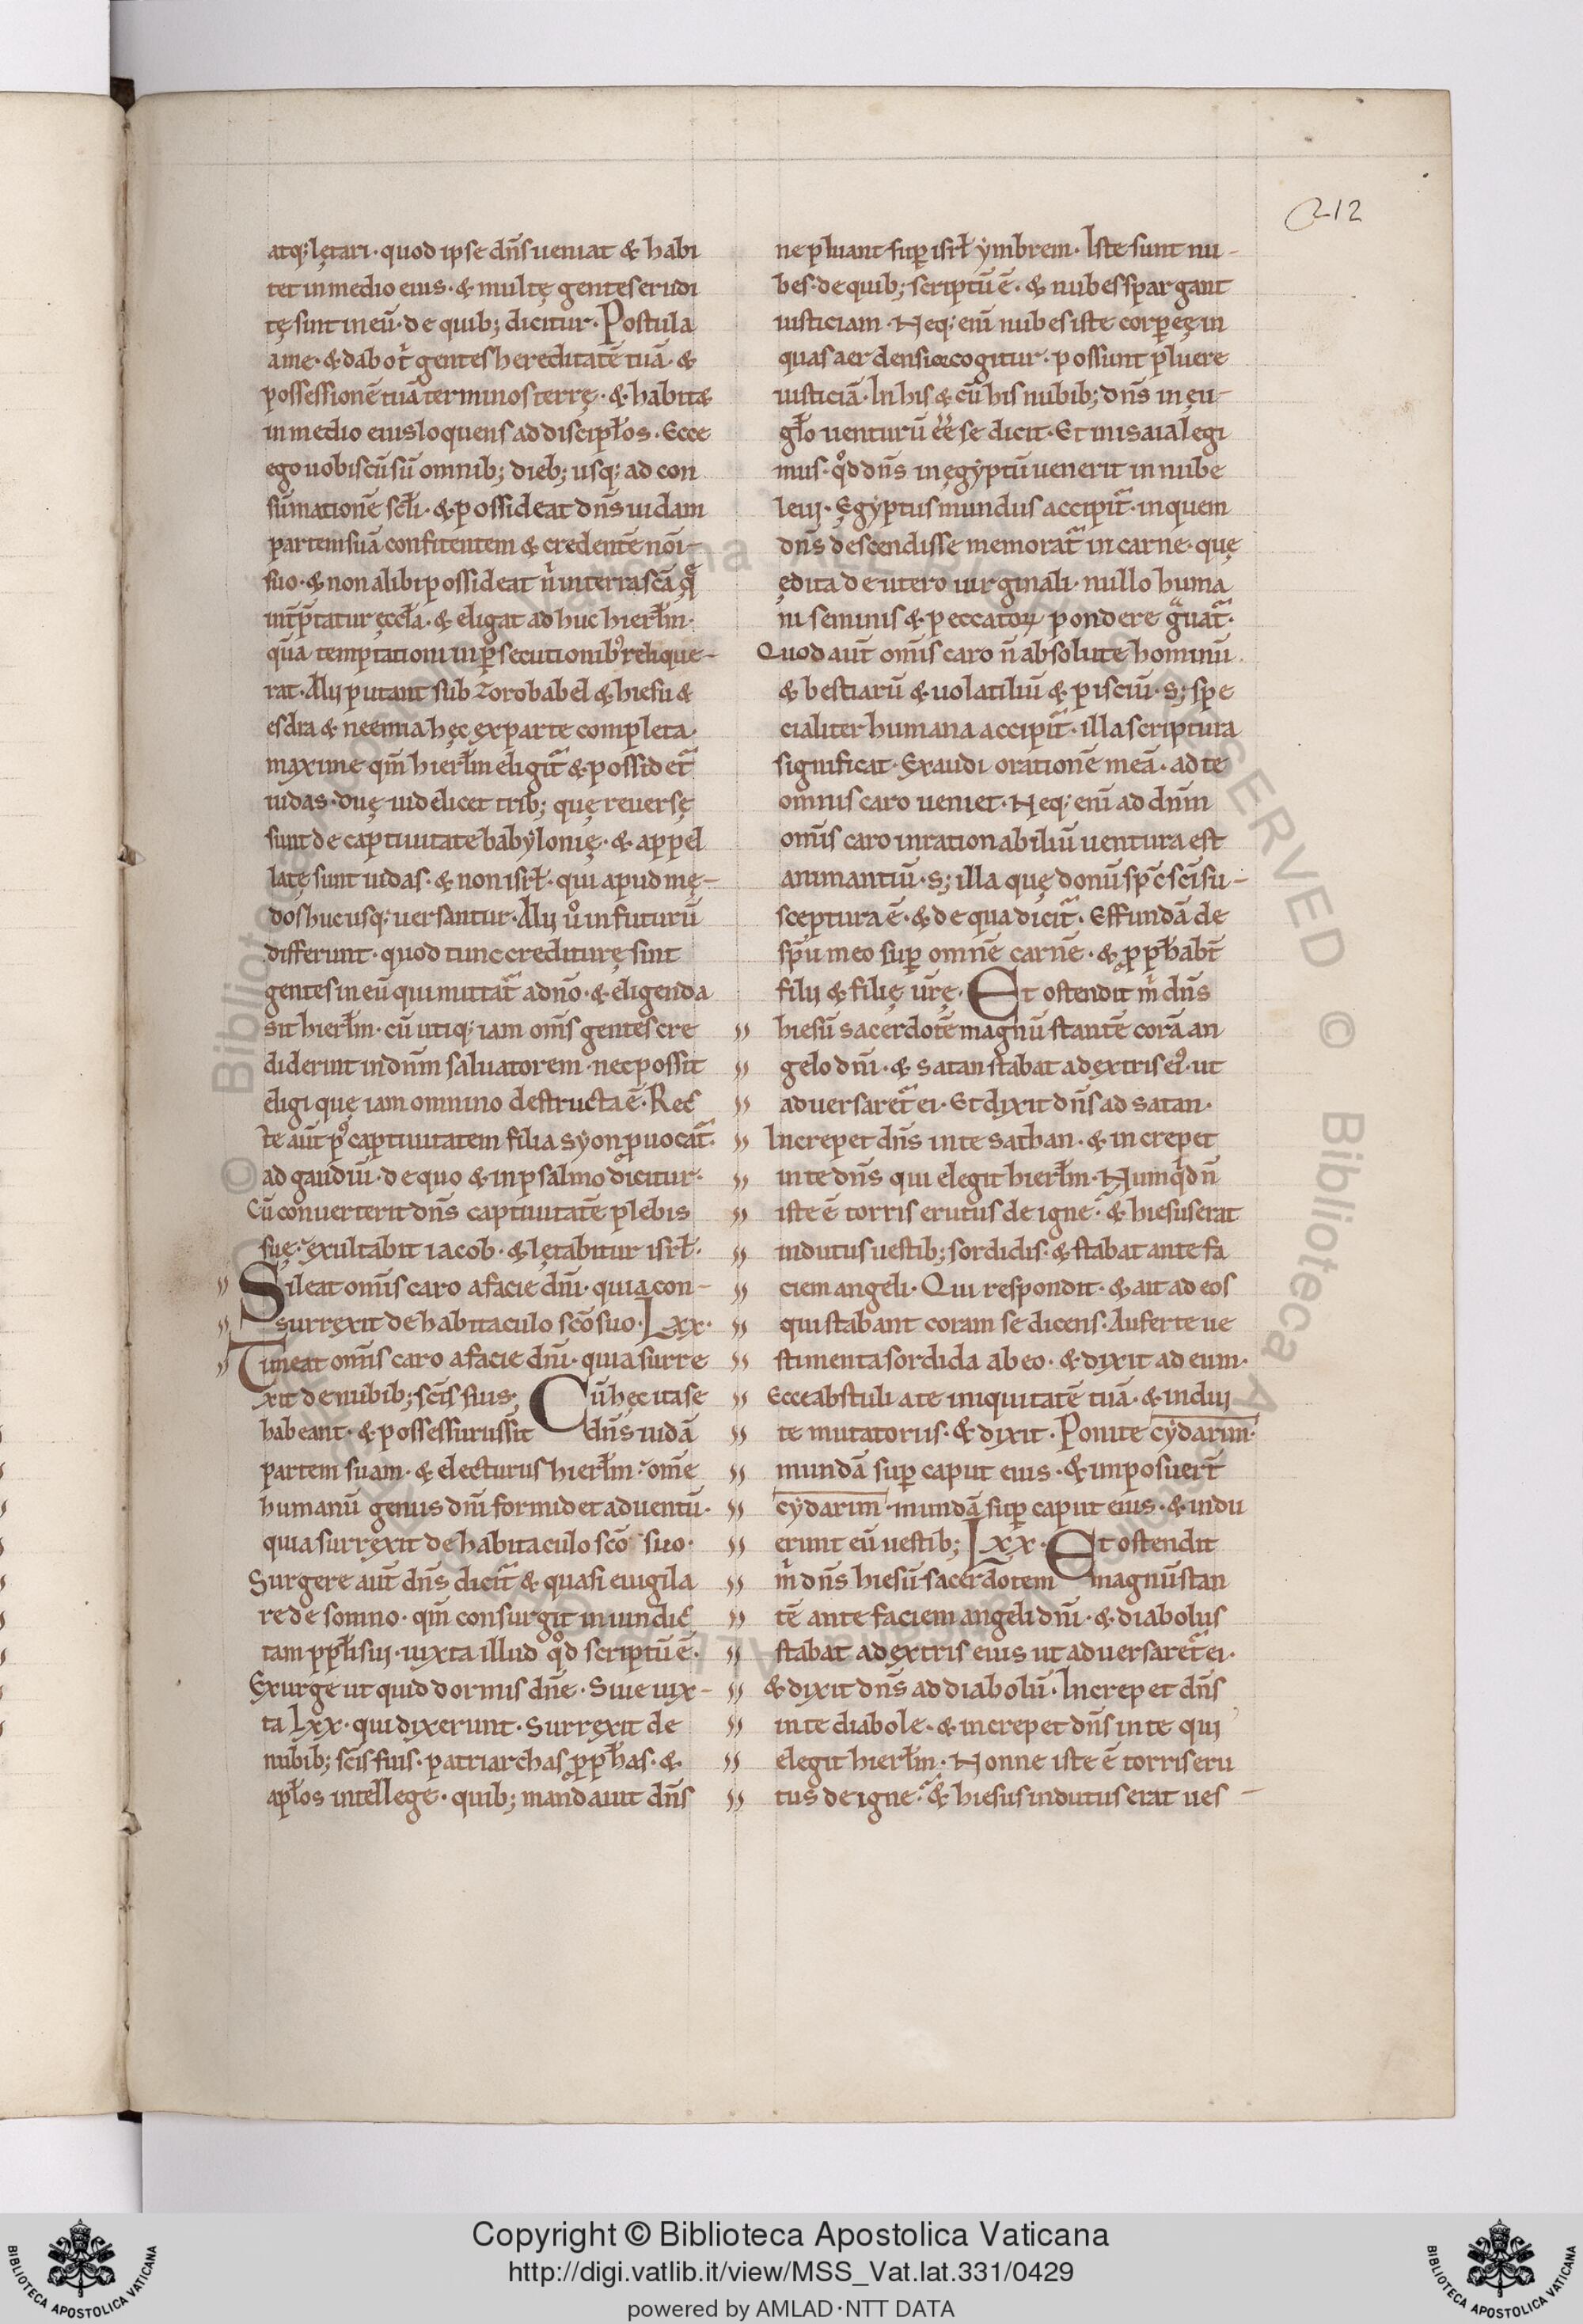 212
atq; lętari· quod ipse dn̄s ueniat & habi
tet in medio eius· & multę gentes erudi
tę sint in eū· de quib; dicitur· Postula
a me· & dabo t̄ gentes hereditatē tuā· &
possessionē tuā terminos terrę· & habitæ
in medio eius loquens ad discipłos· Ecce
ego uobiscū sū omnib; dieb; usq; ad con
sūmationē scłi· & possideat dn̄s iudam
partem suā confitentem & credentē noī
suo· & non alibi possideat n̄ in terra scā q̄
int̄p̄tatur ęccła· & eligat adhuc hierłm·
quā temptationi in p̱secutionib᷒ relique-
rat· Alij putant sub Zorobabel & hiesu &
esdra & neemia hęc ex parte completa·
maxime qm̄ hierłm eligit᷑ & possidet᷑
iudas· duę uidelicet trib; quę reuersę
sunt de captiuitate babylonię· & appel
latę sunt iudas· & non isrł· qui apud mę-
dos hucusq; uersantur· Alij ů in futurū
differunt· quod tunc crediturę sint
gentes in eū qui mittat᷑ a dnō· & eligenda
sit hierłm· cū utiq; iam om̄s gentes cre
diderint in dn̄m saluatorem· nec possit
eligi quę iam omnino destructa ē· Rec
te aut̄ p᷒ captiuitatem filia syon ꝓuocat᷑·
ad gaudiū· de quo & in psalmo dicitur·
Cū conuerterit dn̄s captiuitatē plebis
suę· exultabit iacob· & lętabitur isrł·
Sileat om̄is caro a facie dn̄i· quia con-
surrexit de habitaculo scō suo· Lxx·
Timeat om̄is caro a facie dn̄i· quia surre
xit de nubib; scīs suis; Cū hęc ita se
habeant· & possessurus sit dn̄s iudā
partem suam· & electurus hierłm· om̄e
humanū genus dn̄i formidet aduentū·
quia surrexit de habitaculo scō suo·
Surgere aut̄ dn̄s dicit᷑ & quasi euigila
re de somno· qm̄ consurgit in uindic
tam ppłi sui· iuxta illud qd̊ scriptū ē·
Exurge ut quid dormis dn̄e· Siue iux-
ta Lxx· qui dixerunt· Surrexit de
nubib; scīs suis· patriarchas ꝓph̄as· &
apłos intellege· quib; mandauit dn̄s
ne pluant sup̱ isrł ymbrem· Iste sunt nu-
bes· de quib; scriptū ē· & nubes spargant
iusticiam· Neq; enī nubes iste corp̱eę in
quas aer densior cogitur· possunt pluere
iusticiā· In his & cū his nubib; dn̄s in ęu-
gło uenturū ēē se dicit· Et in isaia legi
mus· qd̊ dn̄s in ęgyptū uenerit in nube
leui· Ęgyptus mundus accipit᷑· in quem
dn̄s descendisse memorat᷑ in carne· quę
ędita de utero uirginali· nullo huma
ni seminis & peccatoꝝ pondere g̃uat᷑·
Quod aut̄ om̄is caro n̄ absolute hominū
& bestiarū & uolatiliū & pisciū· s; spe
cialiter humana accipit᷑· illa scriptura
significat· Exaudi orationē meā· ad te
omnis caro ueniet· Neq; enī ad dn̄m
om̄is caro inrationabiliū uentura est
animantiū· s; illa quę donū sp̄c scī su-
sceptura ē· & de qua dicit᷑· Effundā de
sp̄u meo sup̱ omnē carnē· & ꝓph̄abt̄
filij & filię ur̄ę· Et ostendit m̄ dn̄s
hiesū sacerdotē magnū stantē corā an
gelo dn̄i· & satan stabat a dextris ei᷒· ut
aduersaret᷑ ei· Et dixit dn̄s ad satan·
Increpet dn̄s in te sathan· & increpet
in te dn̄s qui elegit hierłm· Numqd n̄
iste ē torris erutus de igne· & hiesus erat
indutus uestib; sordidis· & stabat ante fa
ciem angeli· Qui respondit· & ait ad eos
qui stabant coram se dicens· Auferte ue
stimenta sordida ab eo· & dixit ad eum·
Ecce abstuli a te iniquitatē tuā· & indui
te mutatoriis· & dixit· Ponite cydarim·
mundā sup̱ caput eius· & imposuert̄
cydarim· mundā sup̱ caput eius· & indu
erunt eū uestib; Lxx· Et ostendit
m̄ dn̄s hiesū sacerdotem magnū stan
tē ante faciem angeli dn̄i· & diabolus
stabat a dextris eius ut aduersaret᷑ ei·
& dixit dn̄s ad diabolū· Increpet dn̄s
in te diabole· & increpet dn̄s in te qui
elegit hierłm· Nonne iste ē torris eru
tus de igne· & hiesus indutus erat ues-
Copyright © Biblioteca Apostolica Vaticana
http://digi.vatlib.it/view/MSS_Vat.lat.331/0429
powered by AMLAD·NTT DATA
BIBLIOTECA APOSTOLICA VATICANA
BIBLIOTECA APOSTOLICA VATICANA